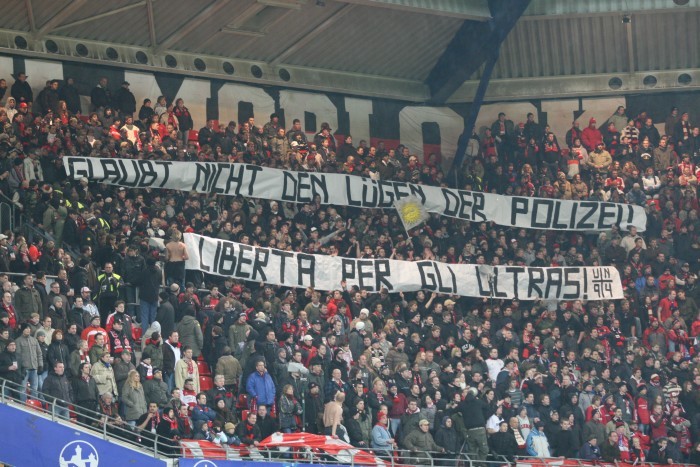 GLAUBT NICHT DEN LÜGEN DER POLIZEI!
LIBERTA PER GLI ULTRAS! UN
94